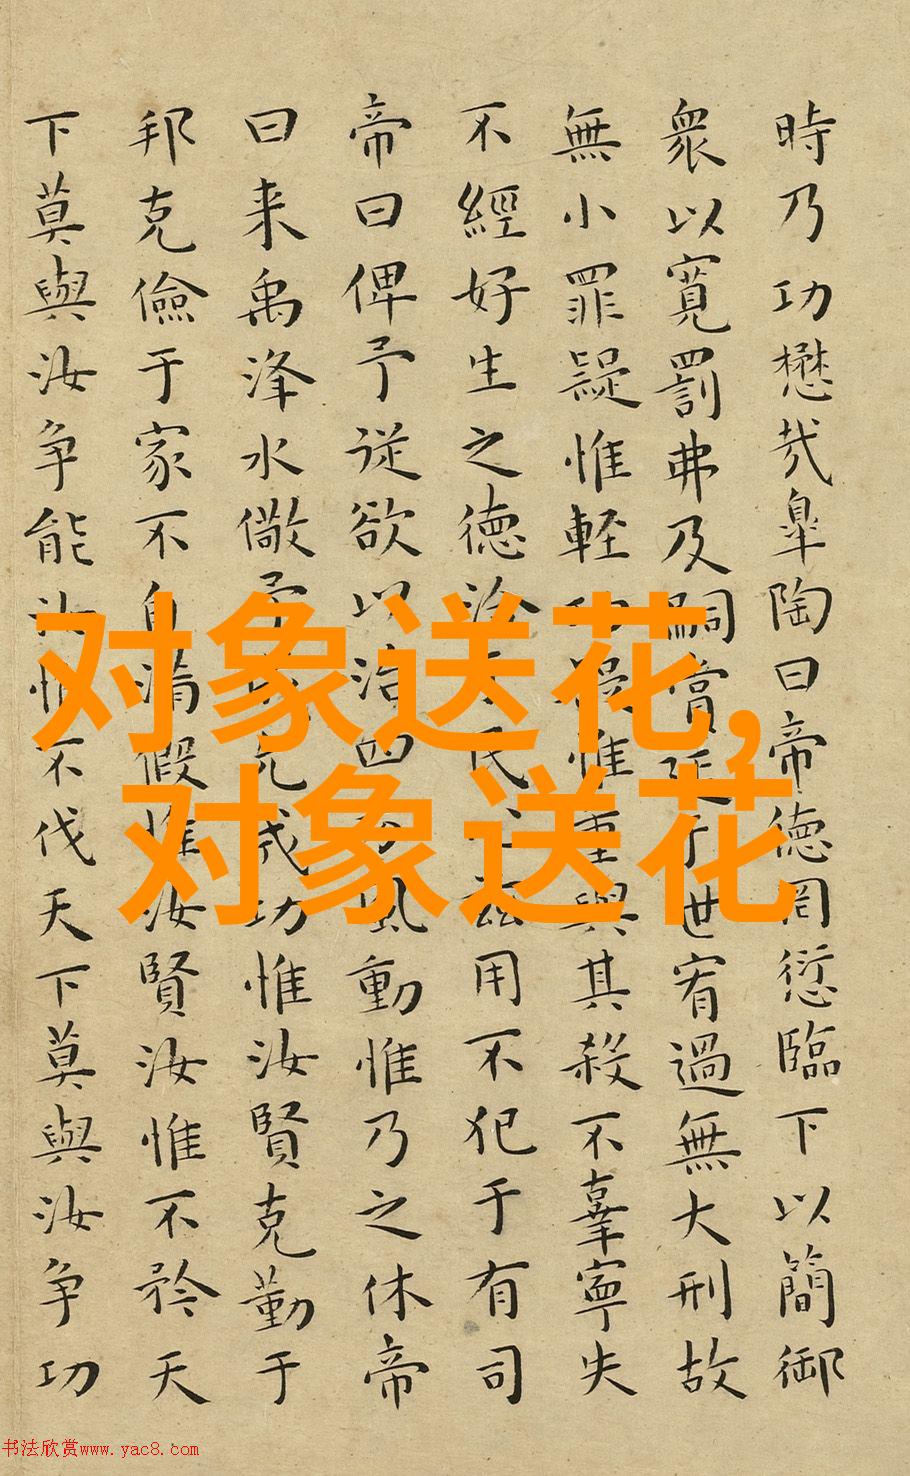 時乃功懋哉皋陶曰帝德罔愆臨下以簡御
衆以寬罰弗及嗣賞延于世宥過無大刑故
無小罪疑惟輕功疑惟重與其殺不辜寧失
不經好生之德洽于民心茲用不犯于有司
帝曰俾予從欲以治四方風動惟乃之休帝
曰来禹洚水儆予成允成功惟汝賢克勤于
邦克儉于家不自滿假惟汝賢汝惟不矜天
下莫與汝争能汝惟不伐天下莫與汝争功
对象送花,
对象送花
书法欣赏www.yac8.com